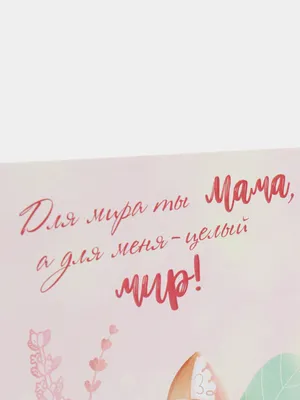 Для мира ты Мама,
а для меня-целый
мир!